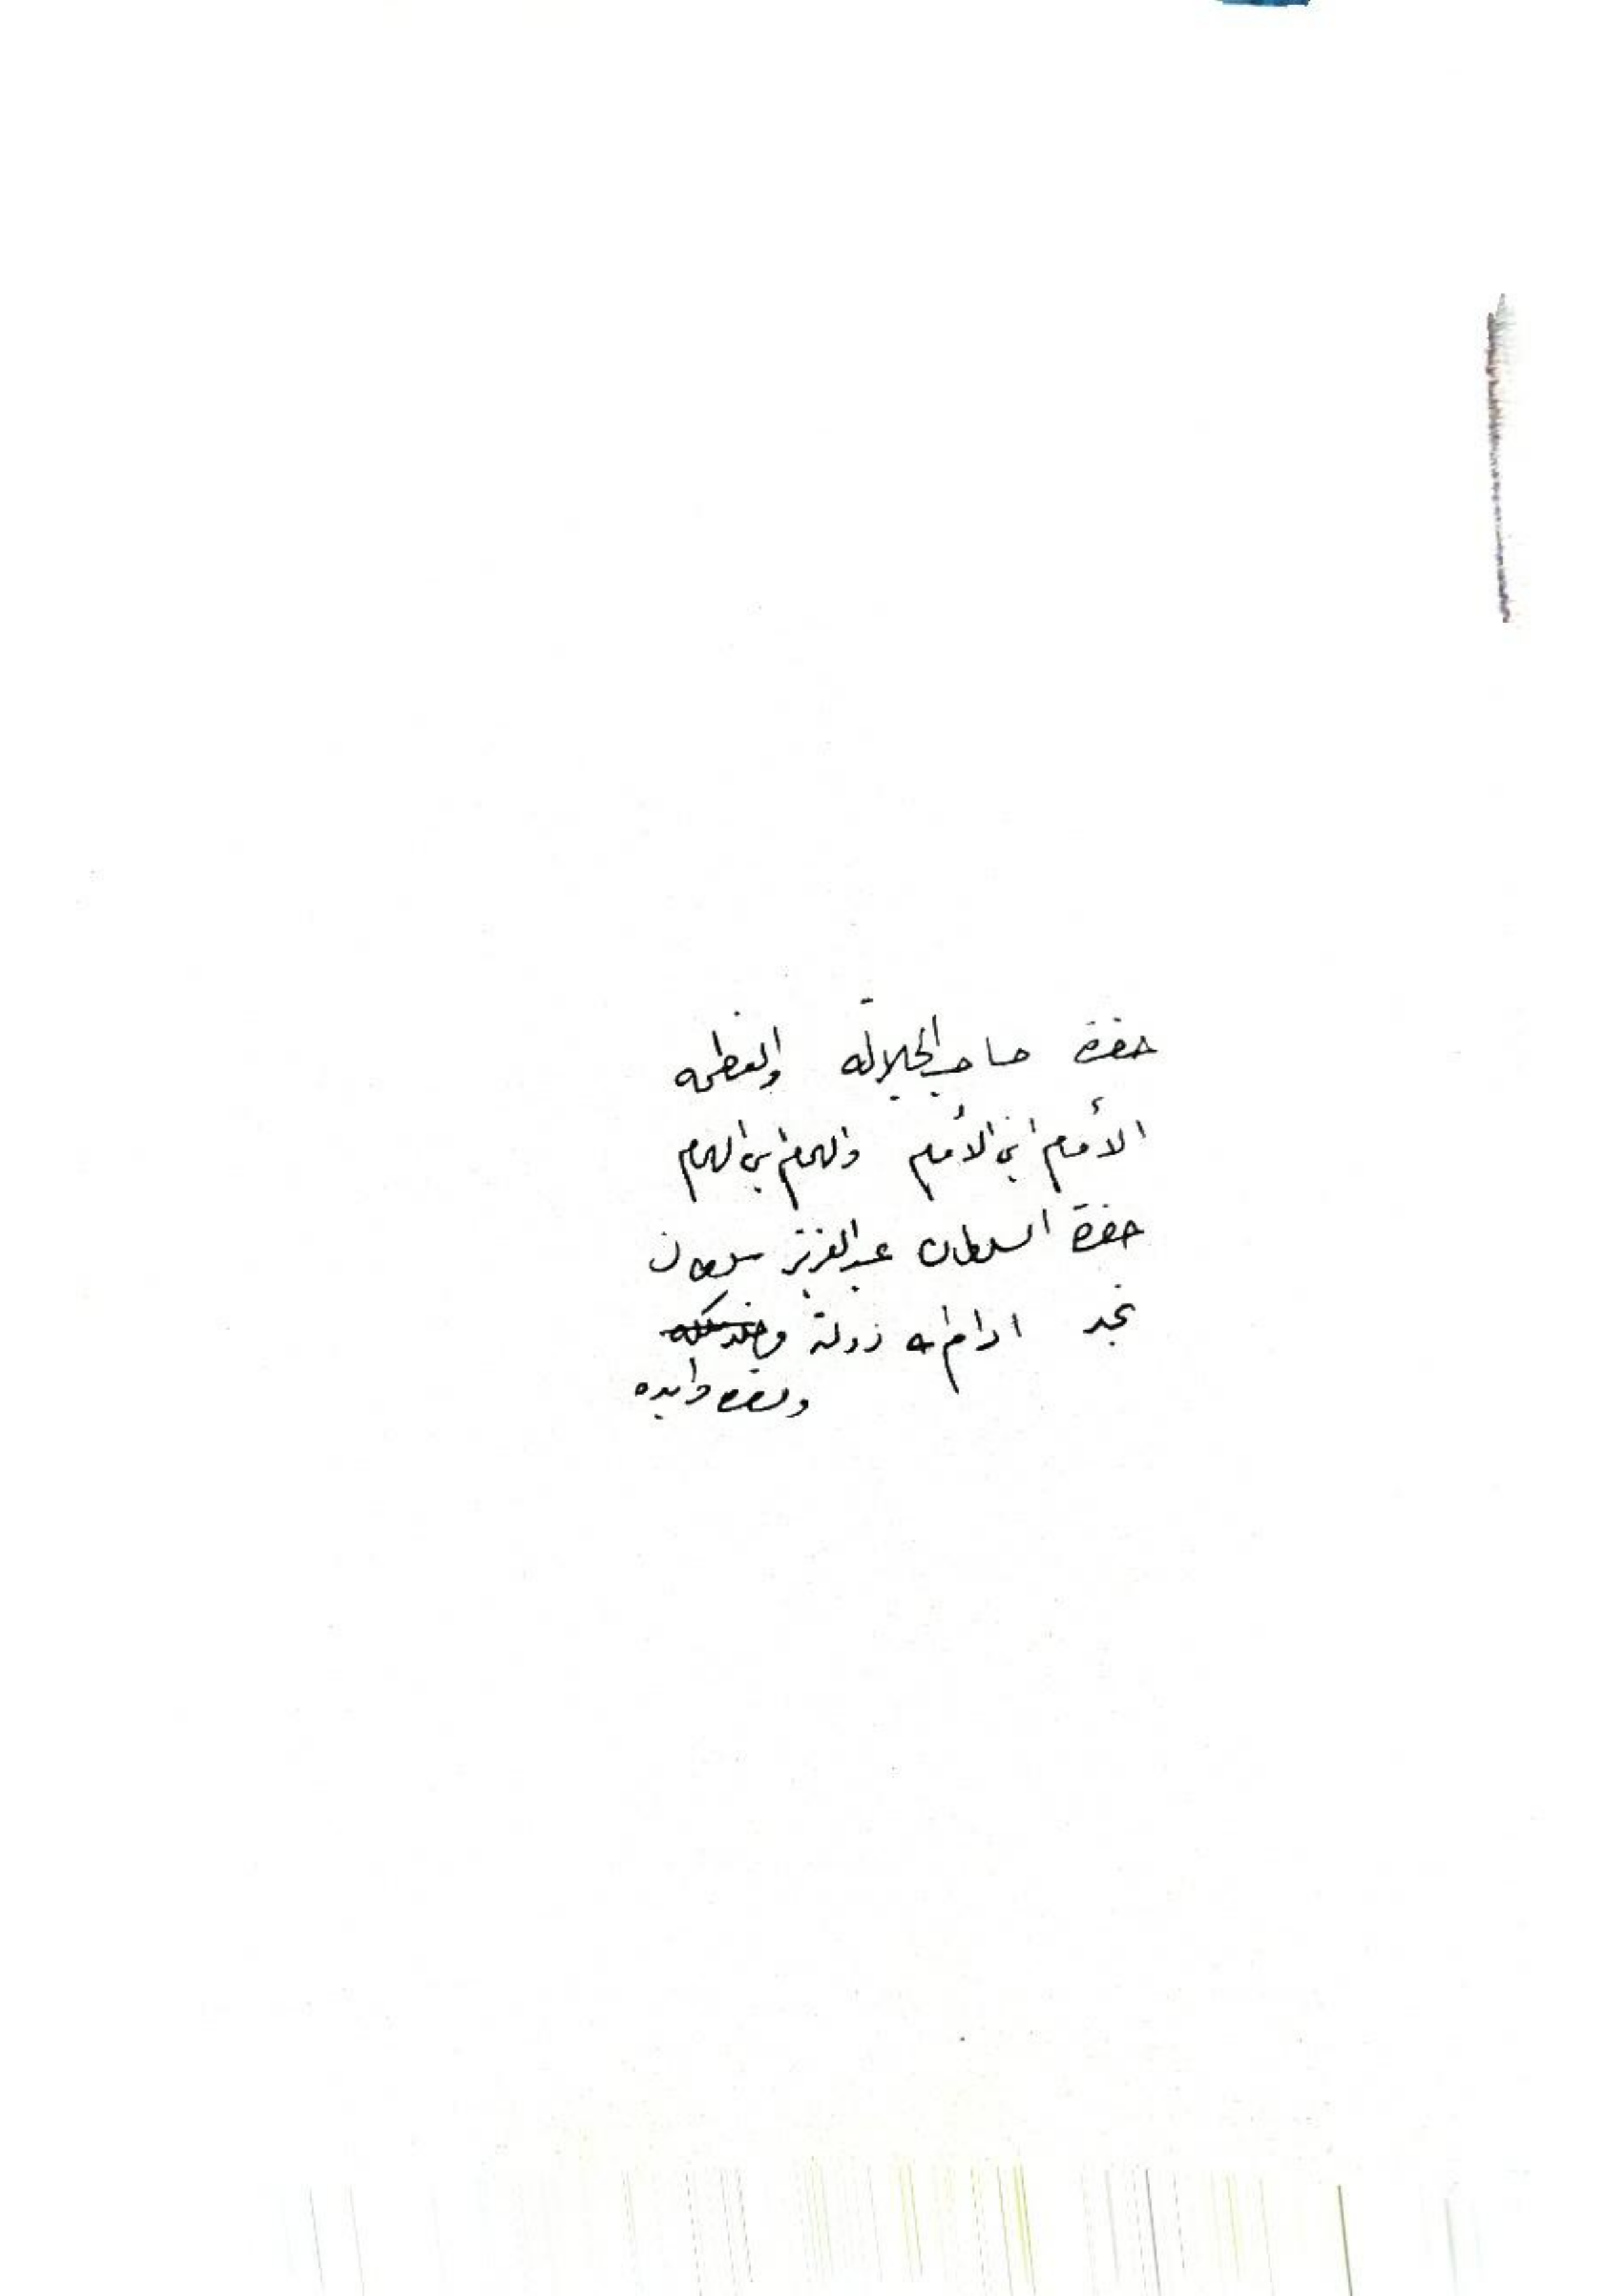 حضرة صاحب الجلالة والعظمه
الأمام ابن الأمام والهمام ابن الهمام
حضرة السلطان عبدالعزيز سلطان
نجد ادام الله دولته
ونصره وايده